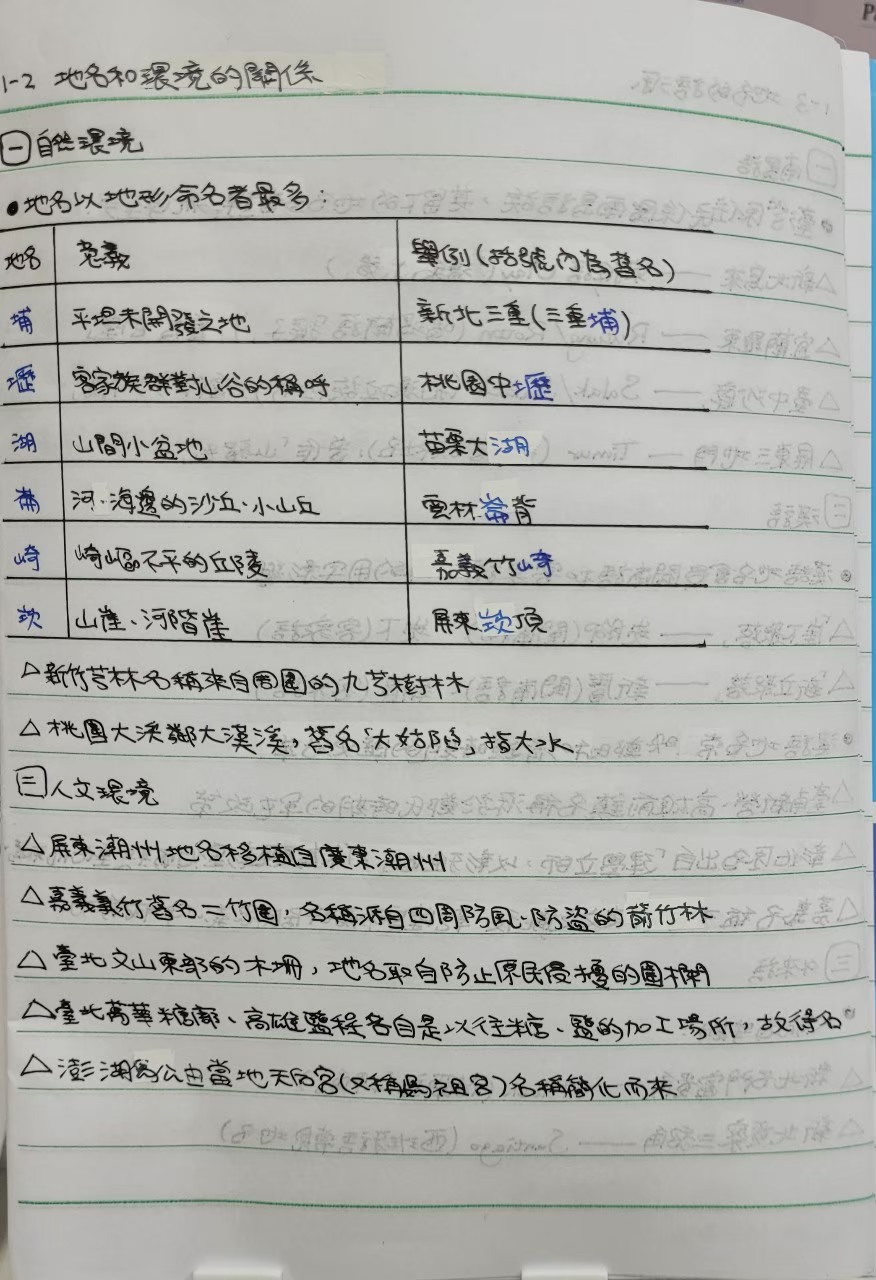 1-2 地名和環境的關係
㊀自然環境
●地名以地形命名者最多：
地名 意義 舉例(括號內為舊名)
埔 平坦未開發之地 新北三重(三重埔)
壢 客家族群對山谷的稱呼 桃園中壢
湖 山間小盆地 苗栗大湖
崙 河、海邊的沙丘、小山丘 雲林崙背
崎 崎嶇不平的丘陵 嘉義竹崎
崁 山崖、河階崖 屏東崁頂
△新竹芎林名稱來自周圍的九芎樹林
△桃園大溪鄰大漢溪，舊名「大姑陷」，指大水
㊁人文環境
△屏東潮州地名移植自廣東潮州
△嘉義義竹舊名二竹圍，名稱源自四周防風、防盜的莿竹林
△臺北文山東部的木柵，地名取自防止原民侵擾的圍欄
△臺北萬華糖廍、高雄鹽埕各自是以往糖、鹽的加工場所，故得名。
△澎湖馬公由當地天后宮(又稱媽祖宮)名稱簡化而來